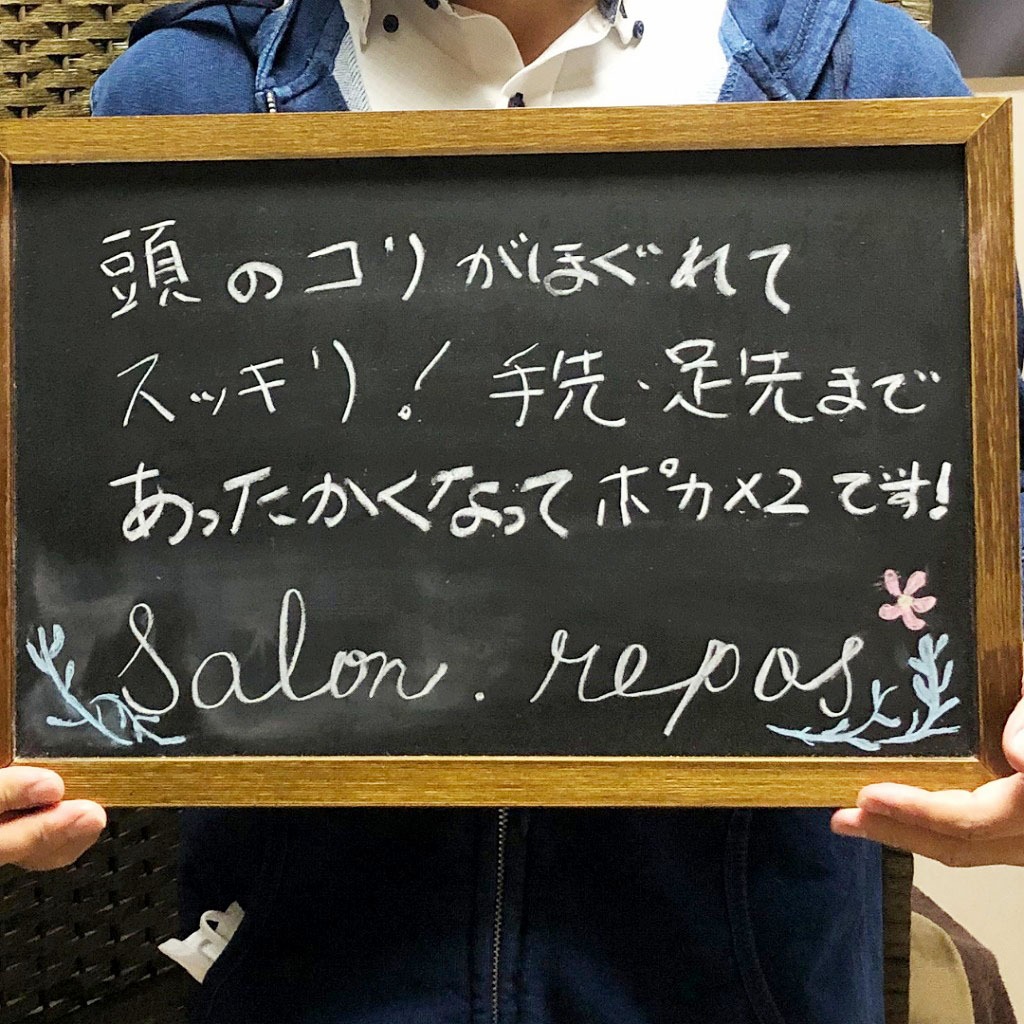 頭のコリがほぐれて
スッキリ! 手先・足先まで
あったかくなってポカ×2です!
Salon. repos